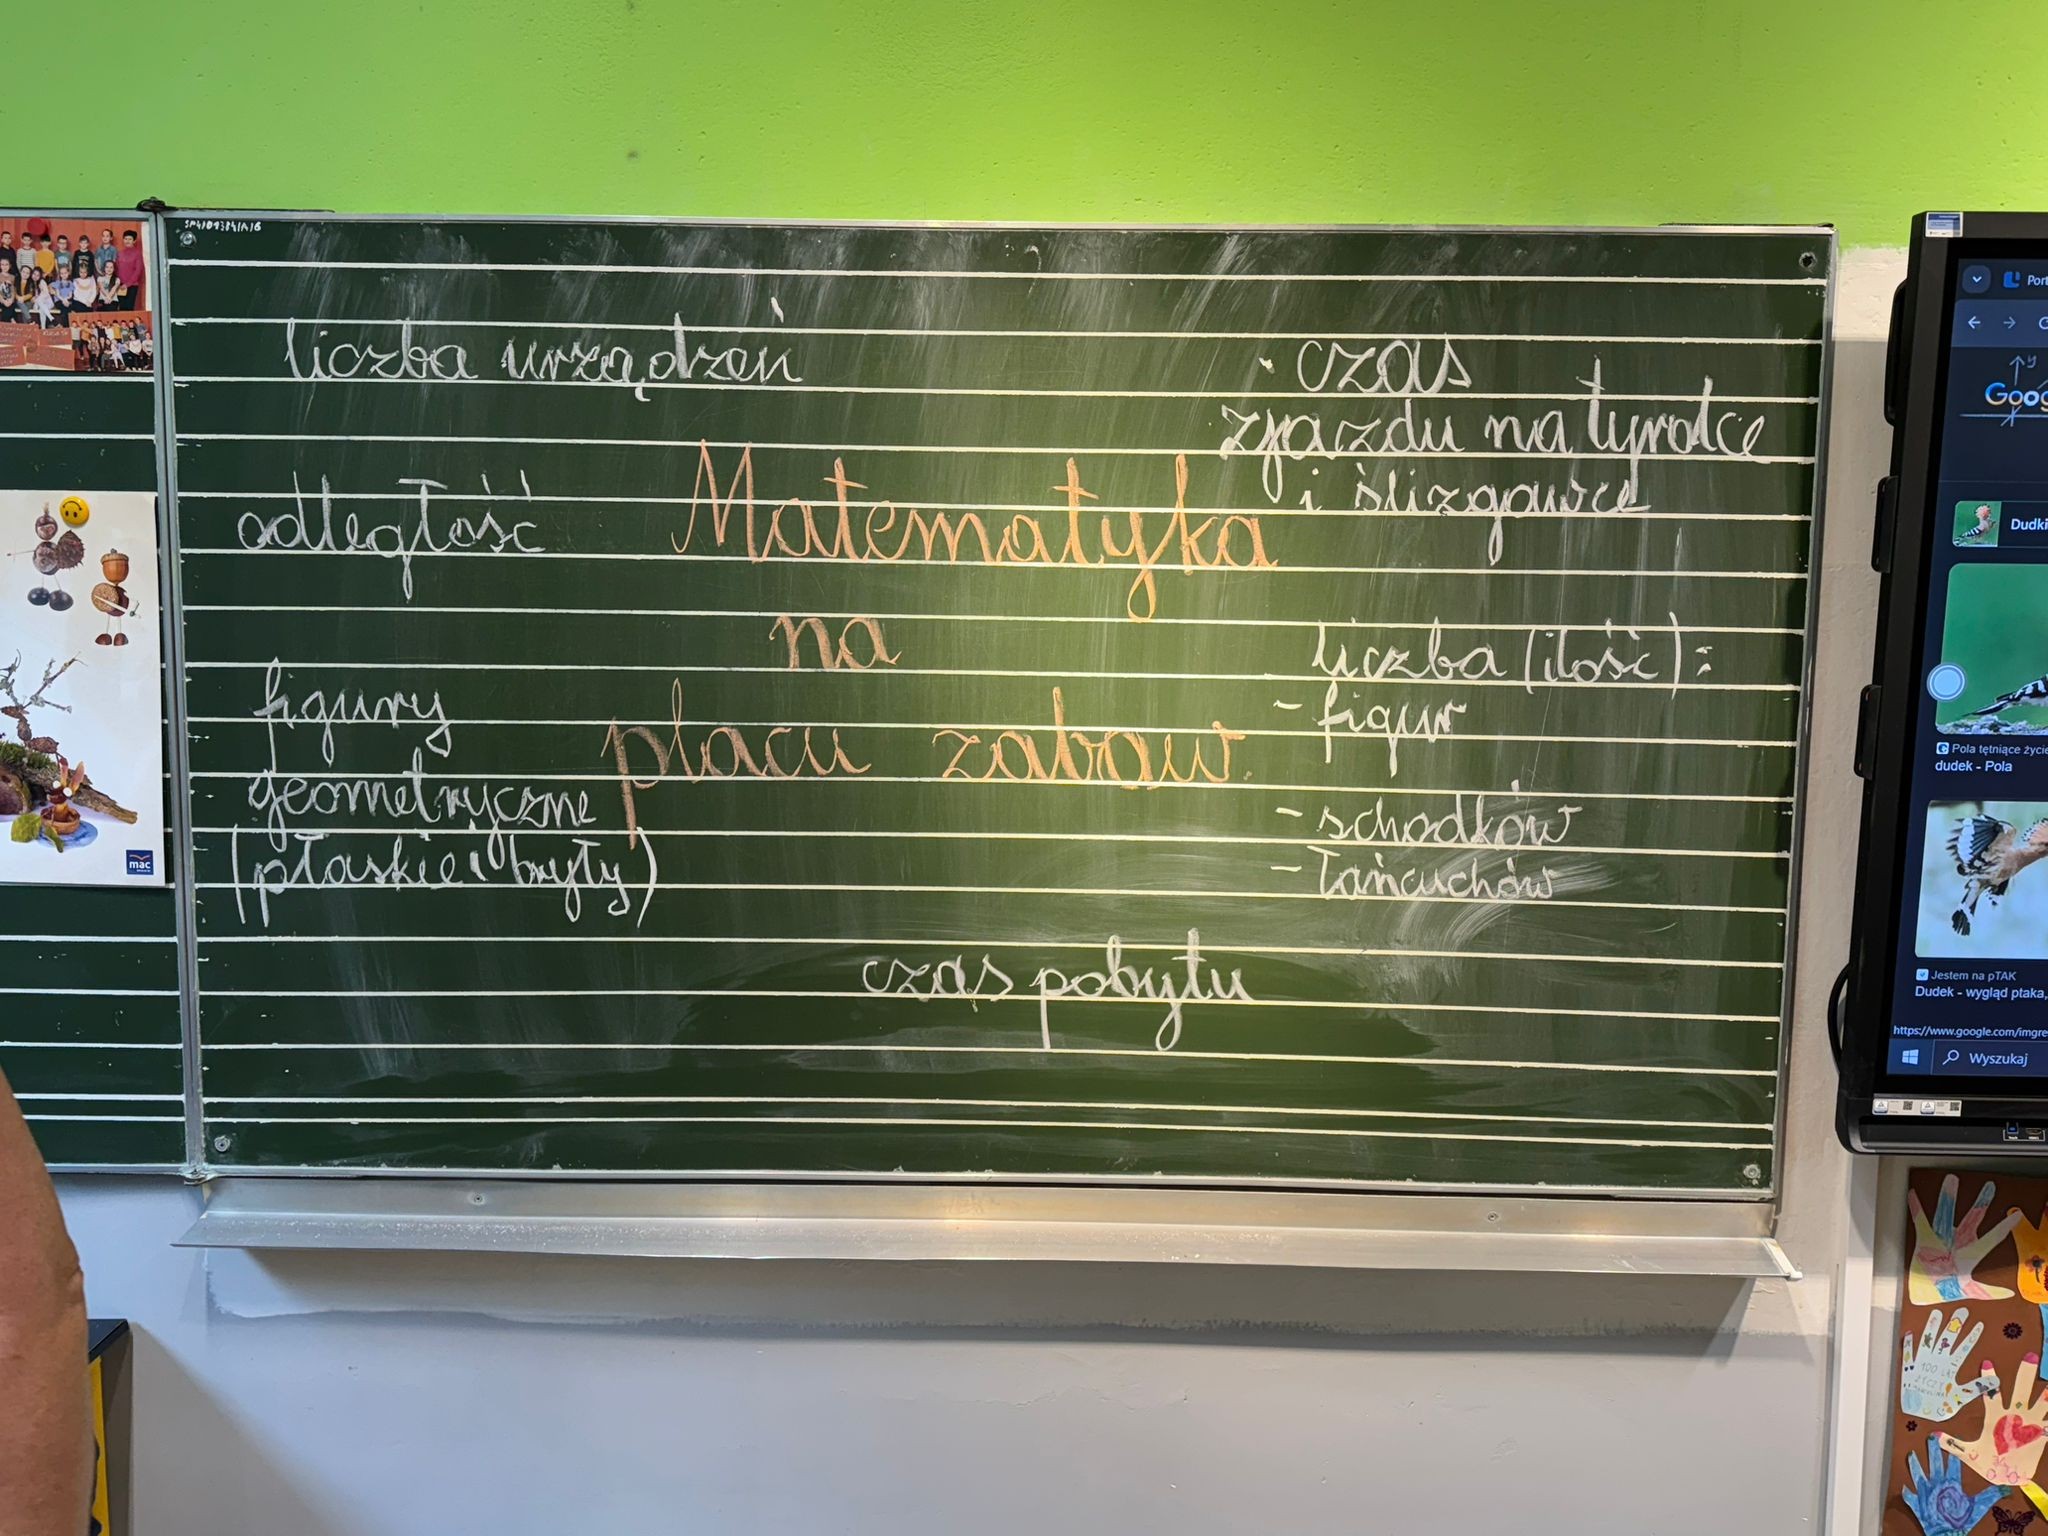 SP4/013841A/6
liczba urządzeń
czas
zjazdu na tyrolce
i ślizgawce
odległość
Matematyka
na
placu zabaw
figury
geometryczne
(płaskie i bryły)
liczba (ilość):
- figur
- schodków
- łańcuchów
czas pobytu
mac
Port
Goog
Dudki
Pola tętniące życie
dudek - Pola
Jestem na pTAK
Dudek - wygląd ptaka,
https://www.google.com/imgre
Wyszukaj
100 LAT
ŻYCZY